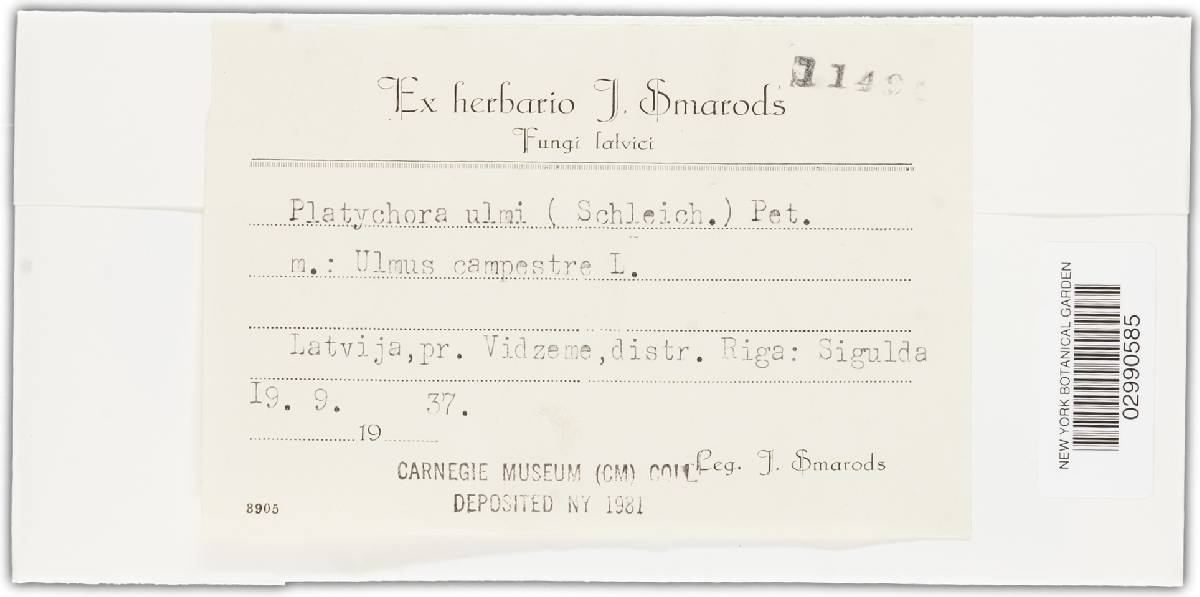 Ex herbario J. Smarods
Fungi latvici
Platychora ulmi ( Schleich.) Pet.
m.: Ulmus campestre L.
Latvija,pr. Vidzeme,distr. Riga: Sigulda
I9. 9. 37.
19
Leg. J. Smarods
CARNEGIE MUSEUM (CM) COLL
DEPOSITED NY 1981
8905
NEW YORK BOTANICAL GARDEN
02990585